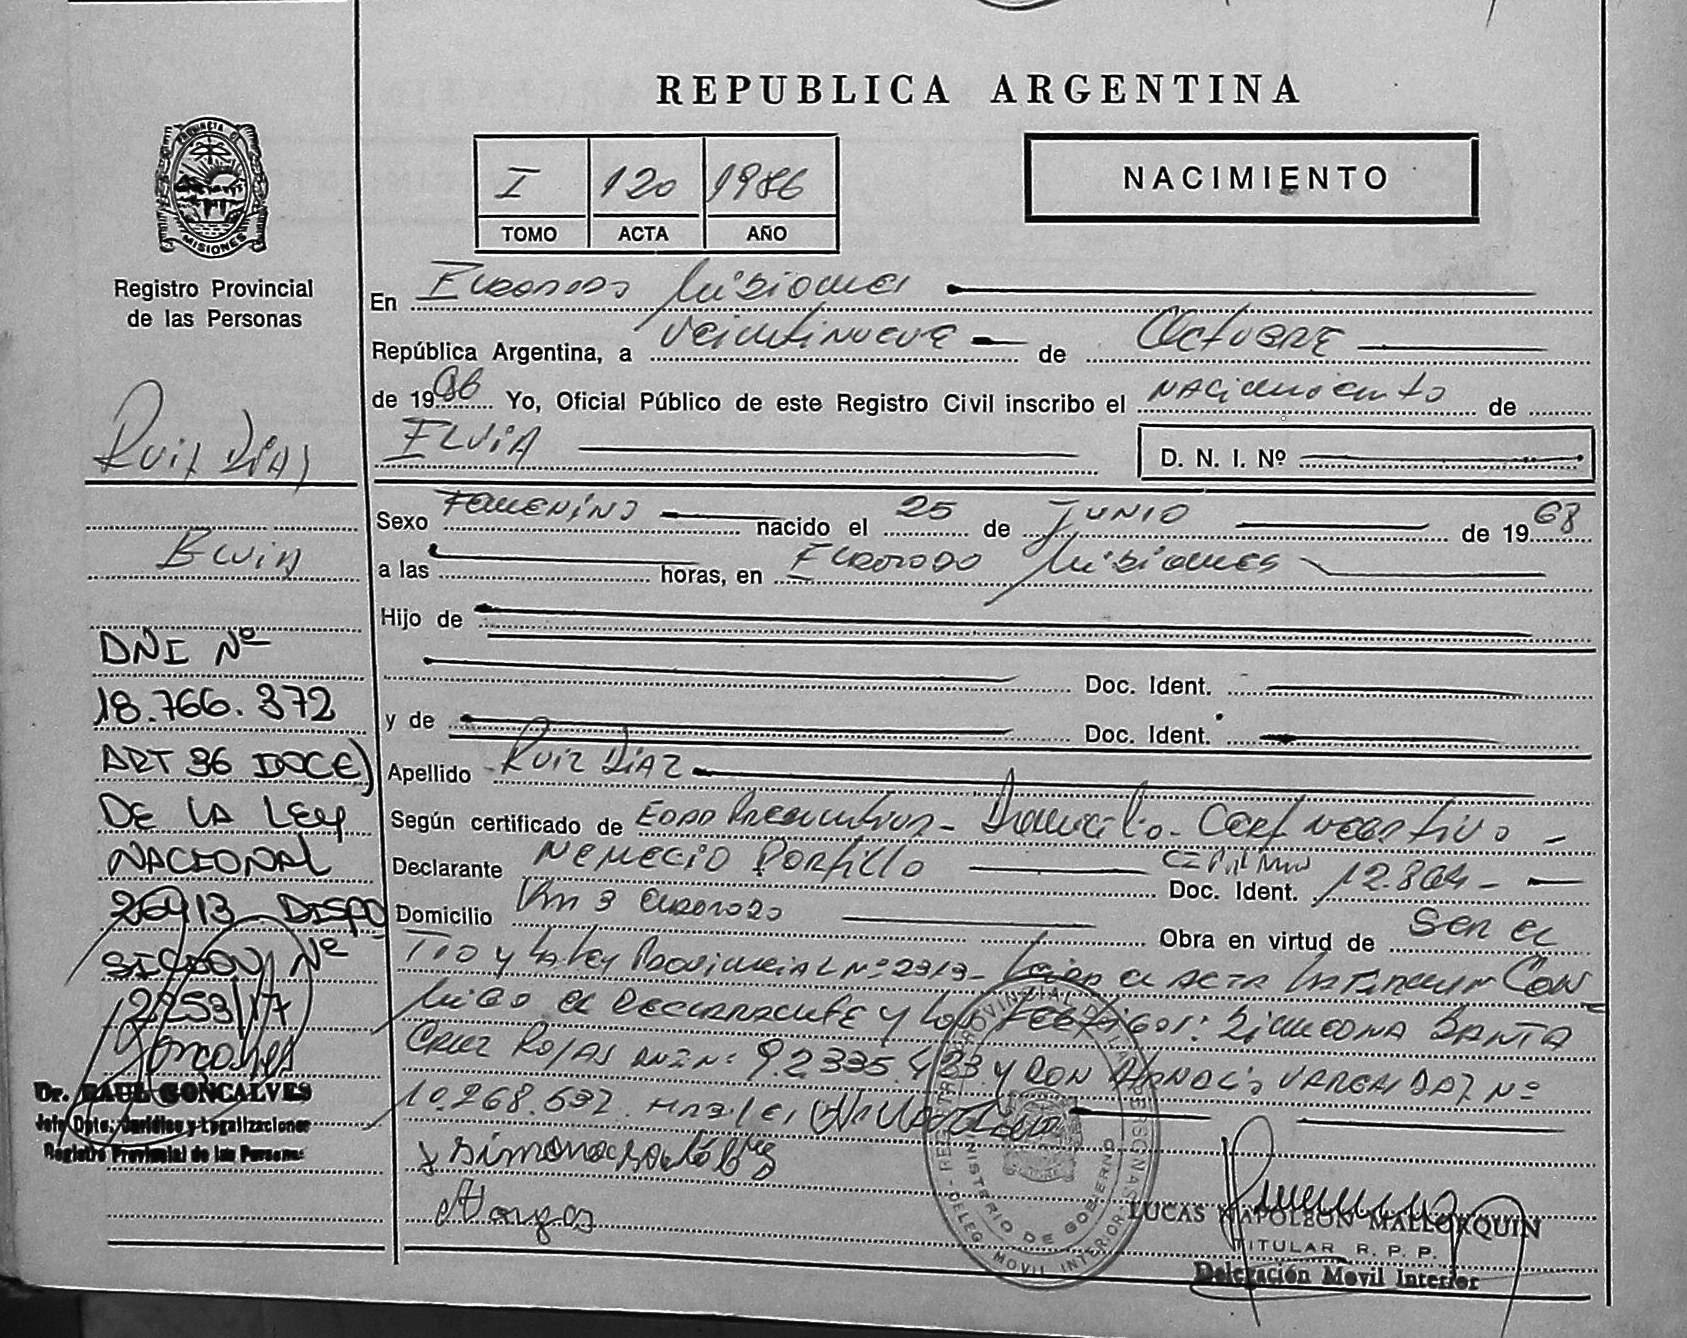 REPUBLICA ARGENTINA
I 120 1986
TOMO ACTA AÑO
NACIMIENTO
PROVINCIA DE
MISIONES
Registro Provincial
de las Personas
Ruiz Diaz
Elvia
DNI Nº
18.766.372
ART 36 DOCE)
DE LA LEY
NACIONAL
26413 DISPO
SICION Nº
2253/17
Goncalves
Dr. RAUL GONCALVES
Jefe Dpto. Jurídico y Legalizaciones
Registro Provincial de las Personas
En Eldorado Misiones
República Argentina, a veintinueve de Octubre
de 1986 Yo, Oficial Público de este Registro Civil inscribo el nacimiento de
ELVIA D. N. I. Nº
Sexo Femenino nacido el 25 de Junio de 1968
a las horas, en Eldorado Misiones
Hijo de
Doc. Ident.
y de Doc. Ident.
Apellido Ruiz Diaz
Según certificado de Edad Presuntiva - Domicilio - Cert negativo -
Declarante Nemecio Portillo Doc. Ident. 12.864 -
Domicilio Km 3 Eldorado Obra en virtud de ser el
Tio y la Ley Provincial Nº 2313 - el acta Con
migo el Declarante y los testigos: Santa
Cruz Rojas y Don Vargas Nº
10.268.
Vargas
REGISTRO PROVINCIAL DE LAS PERSONAS
MINISTERIO DE GOBIERNO
DELEG. MOVIL INTERIOR
LUCAS NAPOLEON MALLORQUIN
TITULAR R. P. P.
Delegación Movil Interior